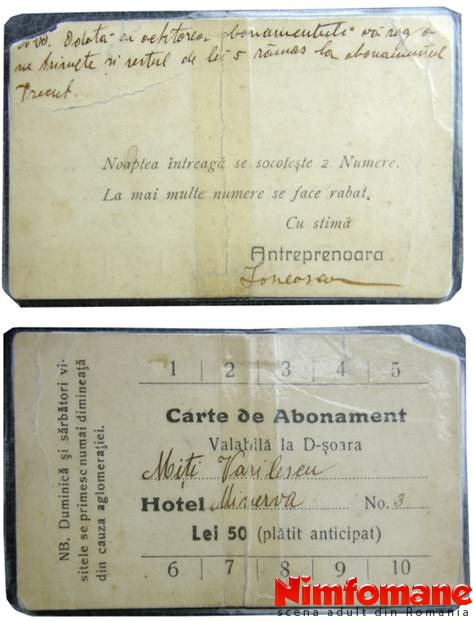 Odată cu achitarea abonamentului vă rog a
ne trimete și restul de lei 5 rămas la abonamentul
trecut...
Noaptea întreagă se socotește 2 Numere.
La mai multe numere se face rabat.
Cu stimă
Antreprenoara
Ionescu
1 2 3 4 5
Carte de Abonament
Valabilă la D-șoara
Miți Vasilescu
Hotel Minerva No. 3
Lei 50 (plătit anticipat)
6 7 8 9 10
NB. Duminică și sărbători vi-
sitele se primesc numai dimineață
din cauza aglomerației.
Nimfomane
scena adult din Romania